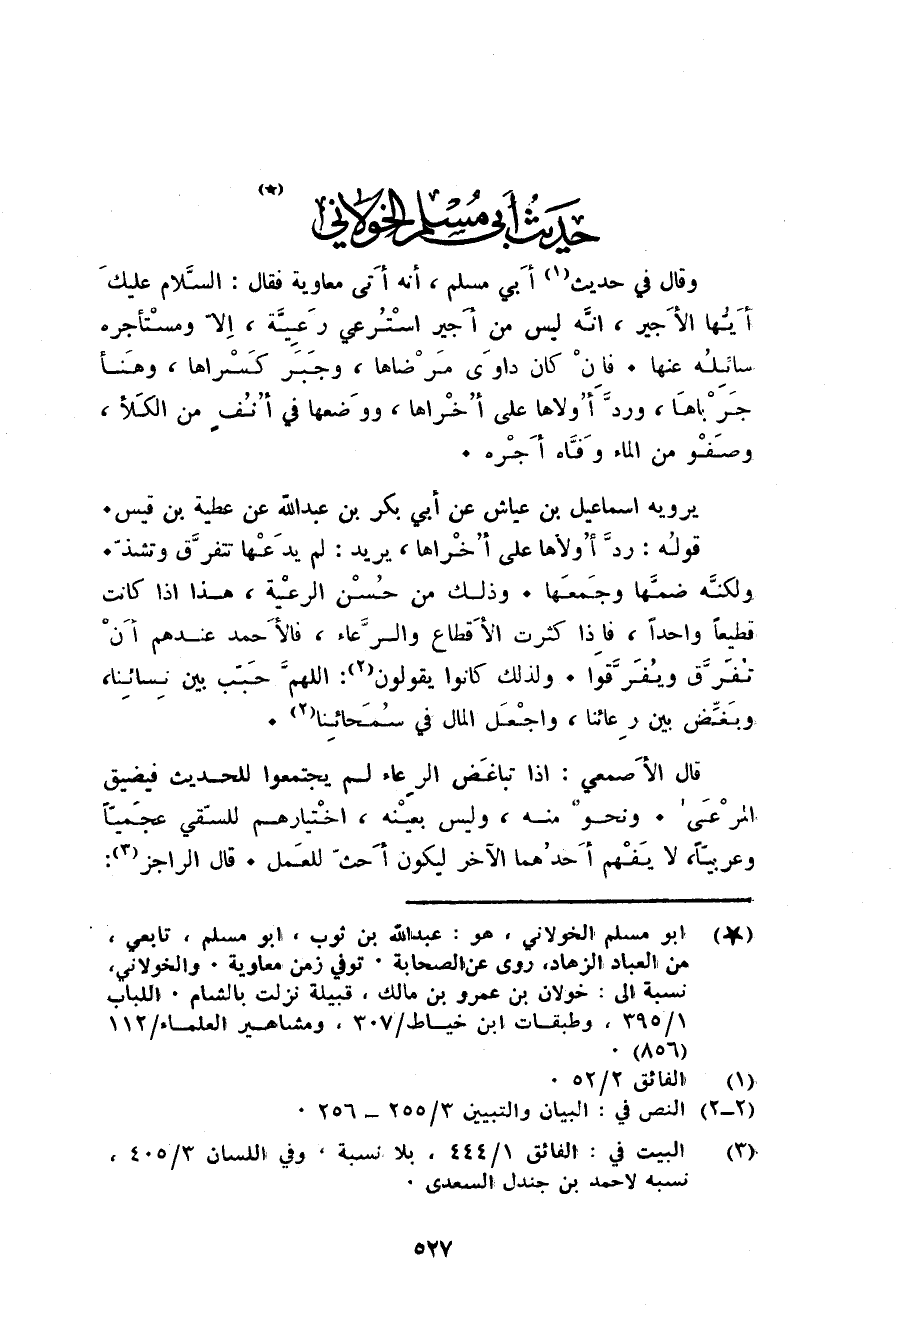 حديث أبي مسلم الخولاني (★)
وقال في حديث(١) أَبي مسلم ، أنه أَتى معاوية فقال : السَّلام عليكَ
أَيُّها الأَجير ، انَّه ليس من أَجير اسْتُرعي رَعِيَّة ، اِلاّ ومسْتأجره
سائِلُه عنها ٠ فاِنْ كان داوَى مَرْضاها ، وجَبَرَ كَسْراها ، وهَنَأ
جَرْباهَا ، وردَّ أُولاها على أُخْراها ، ووَضعها في أُنُفٍ من الكَلَأ ،
وصَفْو من الماء وَفَّاه أَجْره ٠
يرويه اسماعيل بن عياش عن أبي بكر بن عبدالله عن عطية بن قيس٠
قولُه : ردَّ أُولاَها على أُخْراها ، يريد : لم يدَعْها تتفرَّق وتشذّ٠
ولكنَّه ضمَّها وجَمَعَها ٠ وذلك من حُسْن الرعْية ، هذا اذا كانت
قطيعاً واحداً ، فاِذا كثرت الأَقطاع والرِّعاء ، فالأَحمد عندهم أَنْ
تُفَرَّق ويُفَرَّقوا ٠ ولذلك كانوا يقولون(٢): اللهمَّ حَبّب بين نِسائنا،
وبَغِّض بين رِعائنا ، واجْعَل المال في سُمَحائِنا(٢) ٠
قال الأَصمعي : اذا تباغَض الرِعاء لم يجتمعوا للحديث فيضيق
المَرْعَى ٠ ونحوٌ منه ، وليس بعيْنه ، اختْيارهم للسَّقي عجَمياً
وعربيّاً، لا يَفْهم أَحدُهما الآخر ليكون أَحثّ للعَمل ٠ قال الراجز(٣):
(★) ابو مسلم الخولاني ، هو : عبدالله بن ثوب ، ابو مسلم ، تابعي ،
من العباد الزهاد، روى عن الصحابة ٠ توفي زمن معاوية ٠ والخولاني،
نسبة الى : خولان بن عمرو بن مالك ، قبيلة نزلت بالشام ٠ اللباب
٣٩٥/١ ، وطبقات ابن خياط/٣٠٧ ، ومشاهير العلماء/١١٢
(٨٥٦) ٠
(١) الفائق ٥٢/٢ ٠
(٢-٢) النص في : البيان والتبيين ٢٥٥/٣ – ٢٥٦ ٠
(٣) البيت في : الفائق ٤٤٤/١ ، بلا نسبة ، وفي اللسان ٤٠٥/٣ ،
نسبه لاحمد بن جندل السعدى ٠
٥٢٧